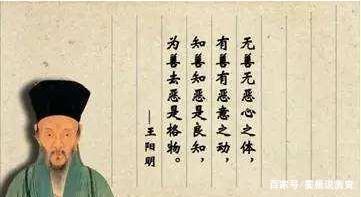 无善无恶心之体，
有善有恶意之动，
知善知恶是良知，
为善去恶是格物。
——王阳明